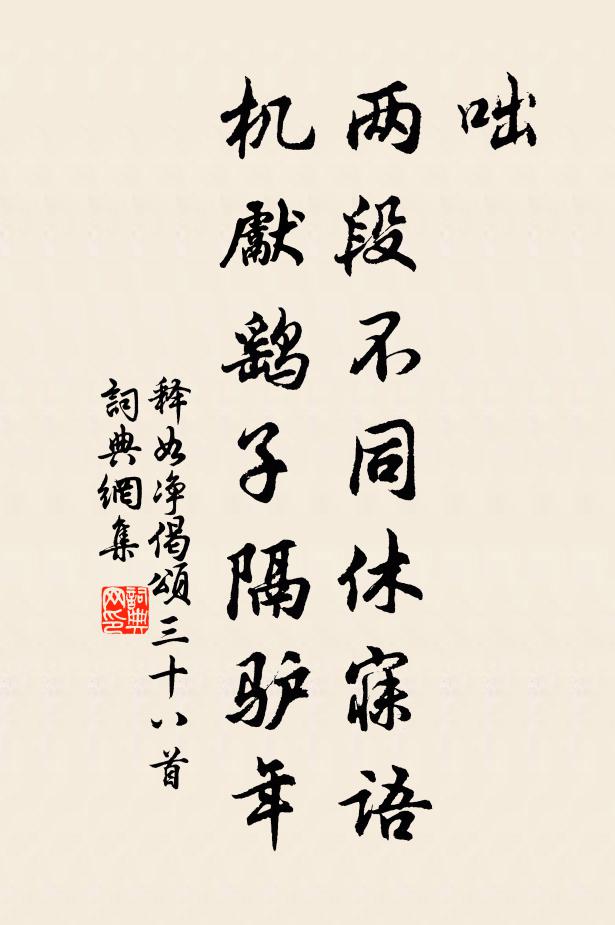 咄
两段不同休寐语
机献鹞子隔驴年
释如净偈颂三十八首
詞典網集
詞典网印